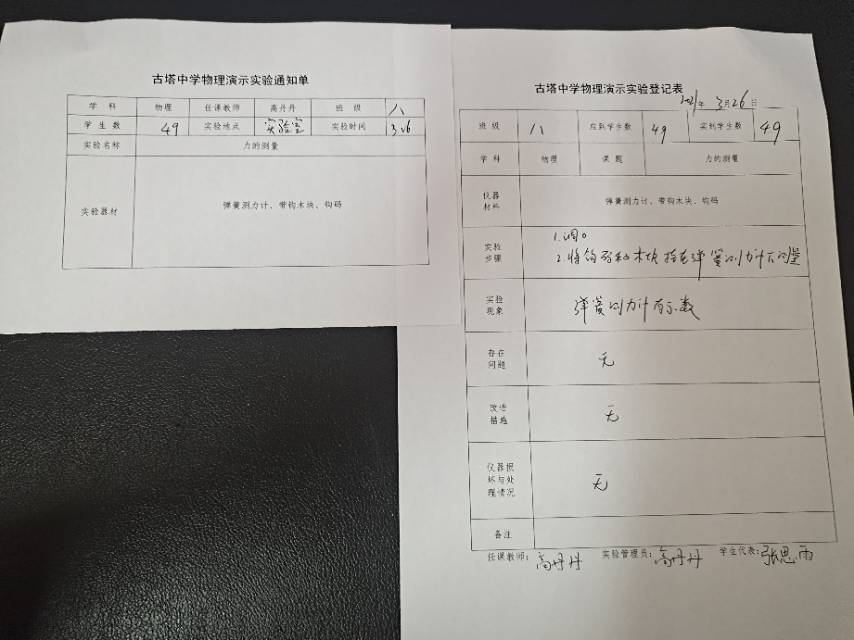 古塔中学物理演示实验通知单
学 科 物理 任课教师 高丹丹 班 级 八
学 生 数 49 实验地点 实验室 实验时间
实验名称 力的测量
实验器材 弹簧测力计、带钩木块、钩码
古塔中学物理演示实验登记表
年 3月26日
班 级 八 应到学生数 49 实到学生数 49
学 科 物理 课 题 力的测量
仪器
材料 弹簧测力计、带钩木块、钩码
实验
步骤
1.调0
2.将钩码和木块挂在弹簧测力计下测量
实验
现象 弹簧测力计有示数
存在
问题 无
改进
措施 无
仪器损
坏与处
理情况 无
备注
任课教师：高丹丹 实验管理员：高丹丹 学生代表：张思雨